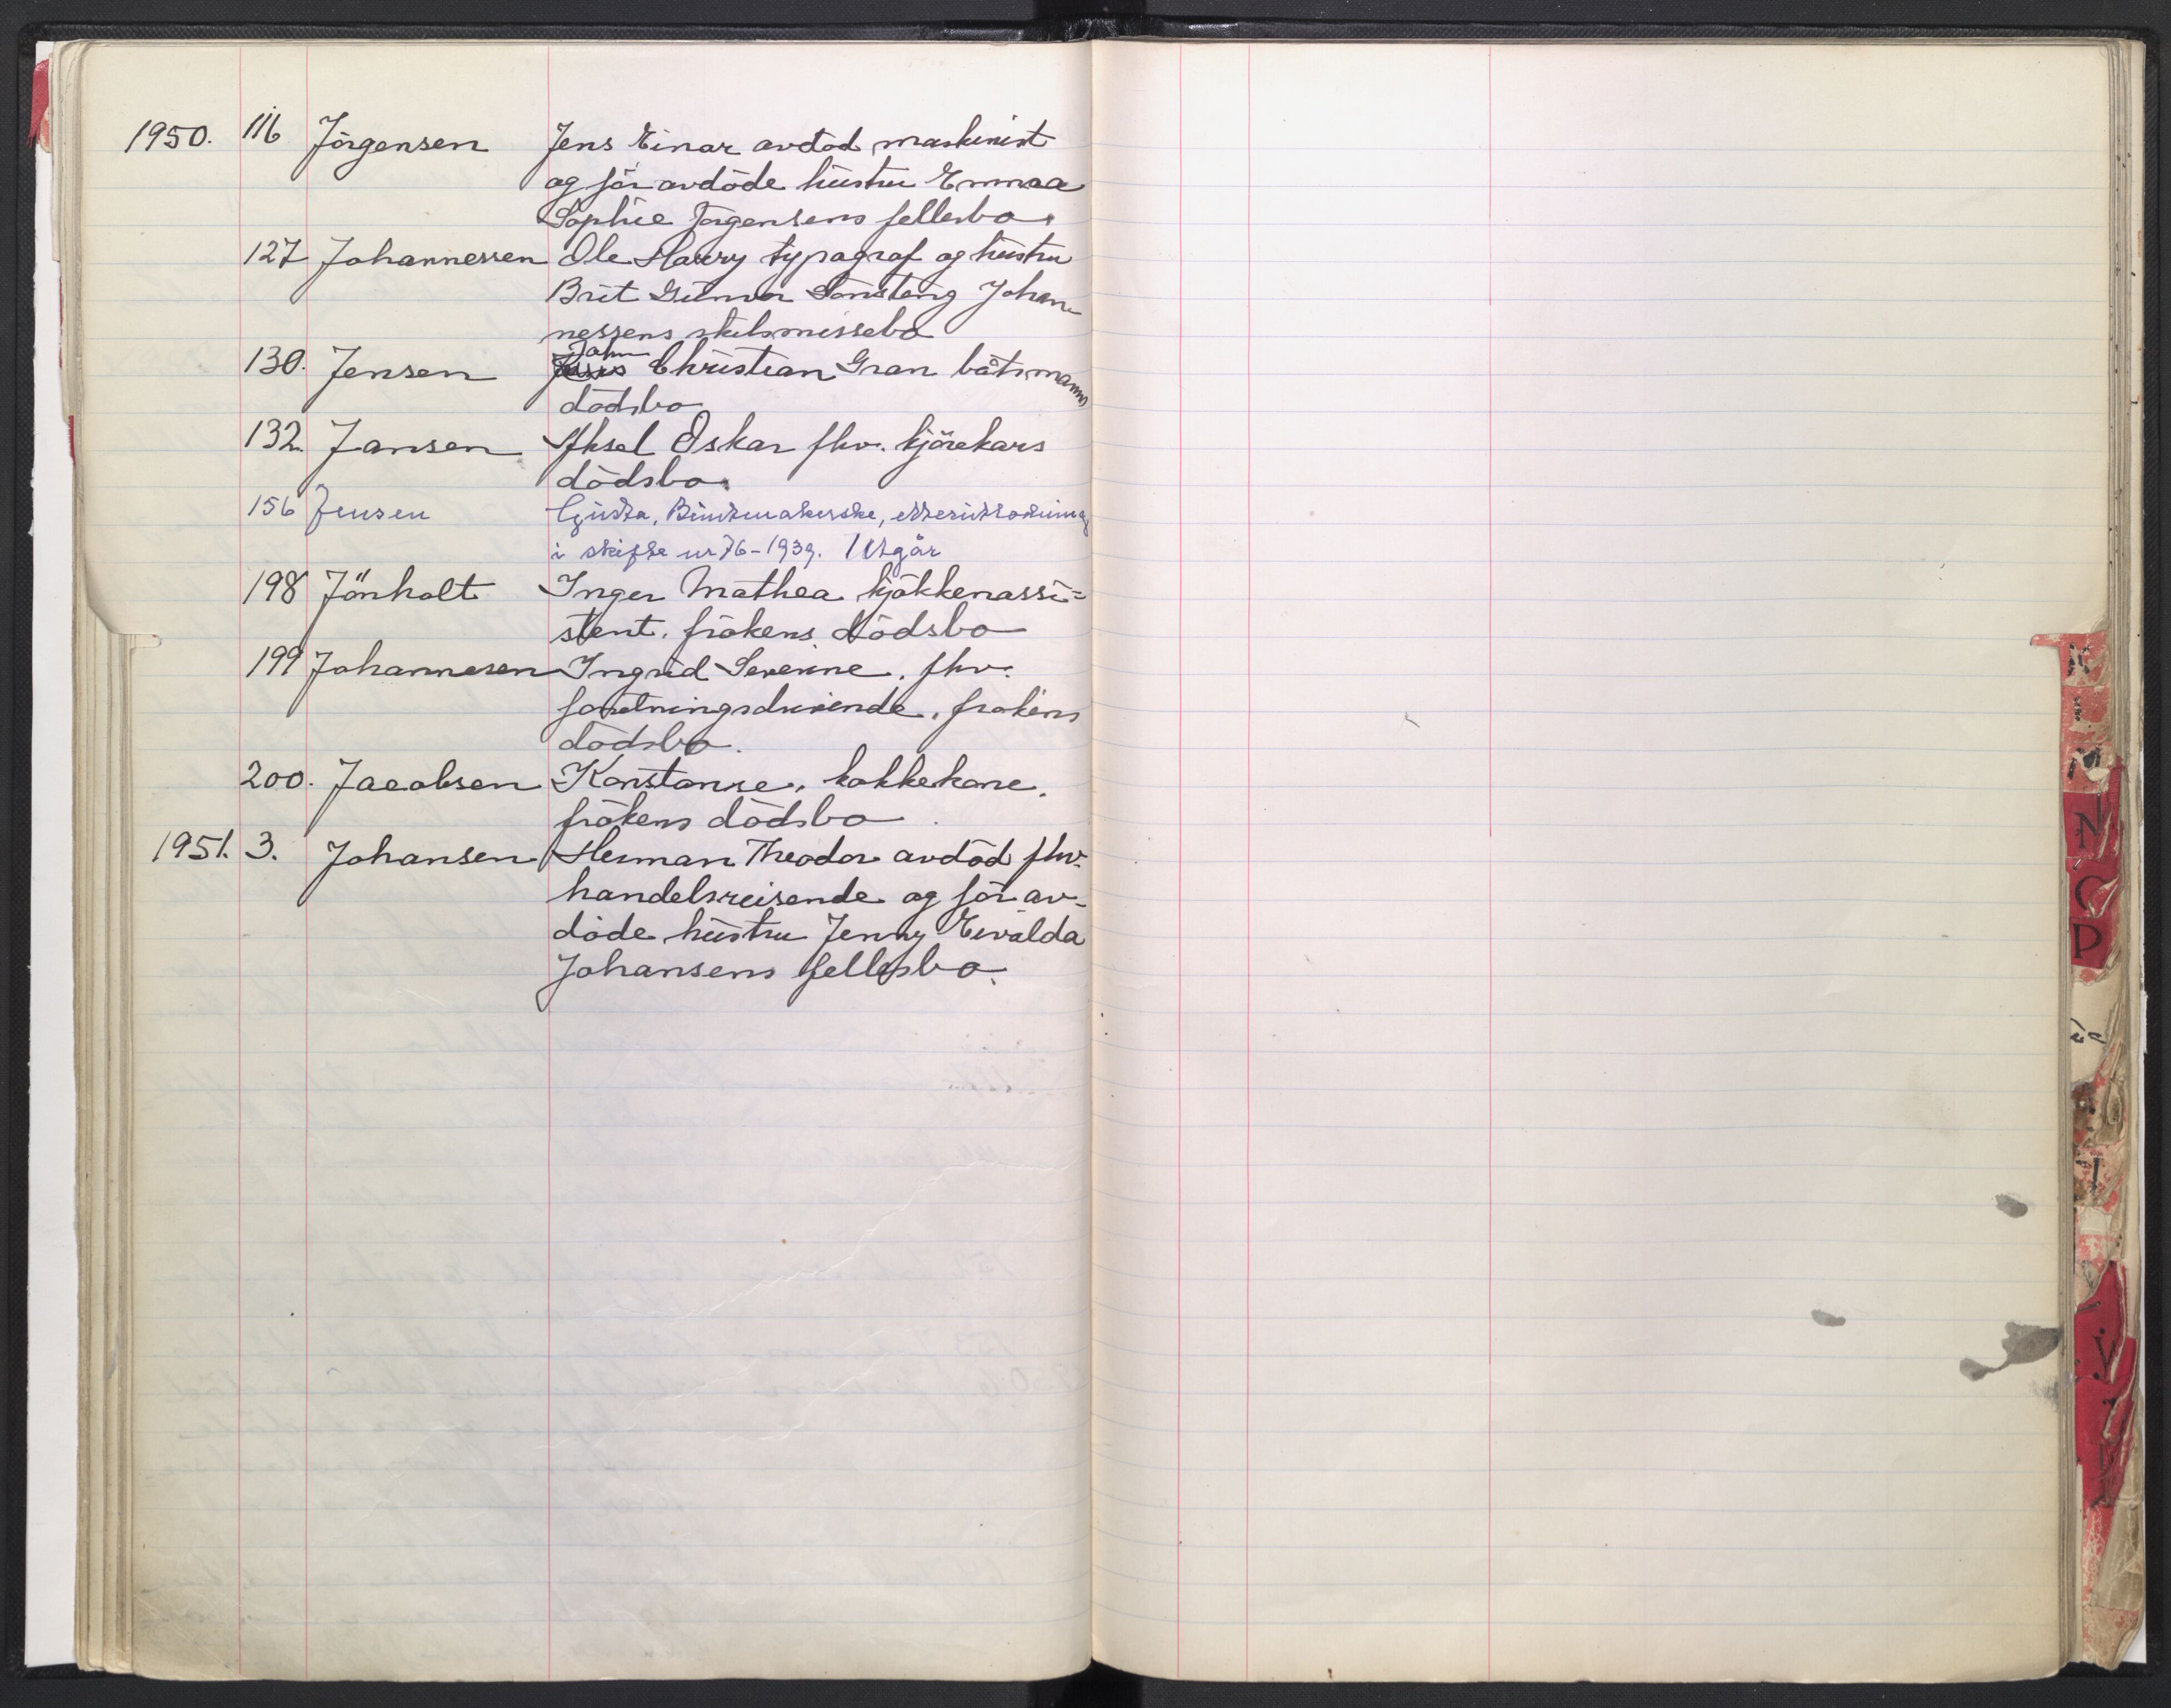 1950. 116 Jörgensen Jens Einar avdöd maskinist
og för avdöde hustru Emma
Sophie Jörgensens fellesbo.
127 Johannessen Ole Harry typograf og hustru
Brit Gunvor Sönsteng Johan
nessens skilsmissebo
John
130. Jensen Christian Gran båtsmanns
dödsbo
132. Jansen Aksel Oskar fhv. kjörekars
dödsbo.
156 Jensen Gusta, Buntmakerske, etterutlodning
i skifte nr 76-1939. Utgår
198 Jönholt Inger Mathea kjökkenassi=
stent. frökens dödsbo
199 Johannesen Ingrid Severine. fhv.
forretningsdrivende. frökens
dödsbo.
200. Jacobsen Konstanse. kokkekone.
frökens dödsbo
1951. 3. Johansen Herman Theodor avdöd fhv.
handelsreisende og för av-
döde hustru Jenny Evalda
Johansens fellesbo.
K
L
M
N
O
P
V